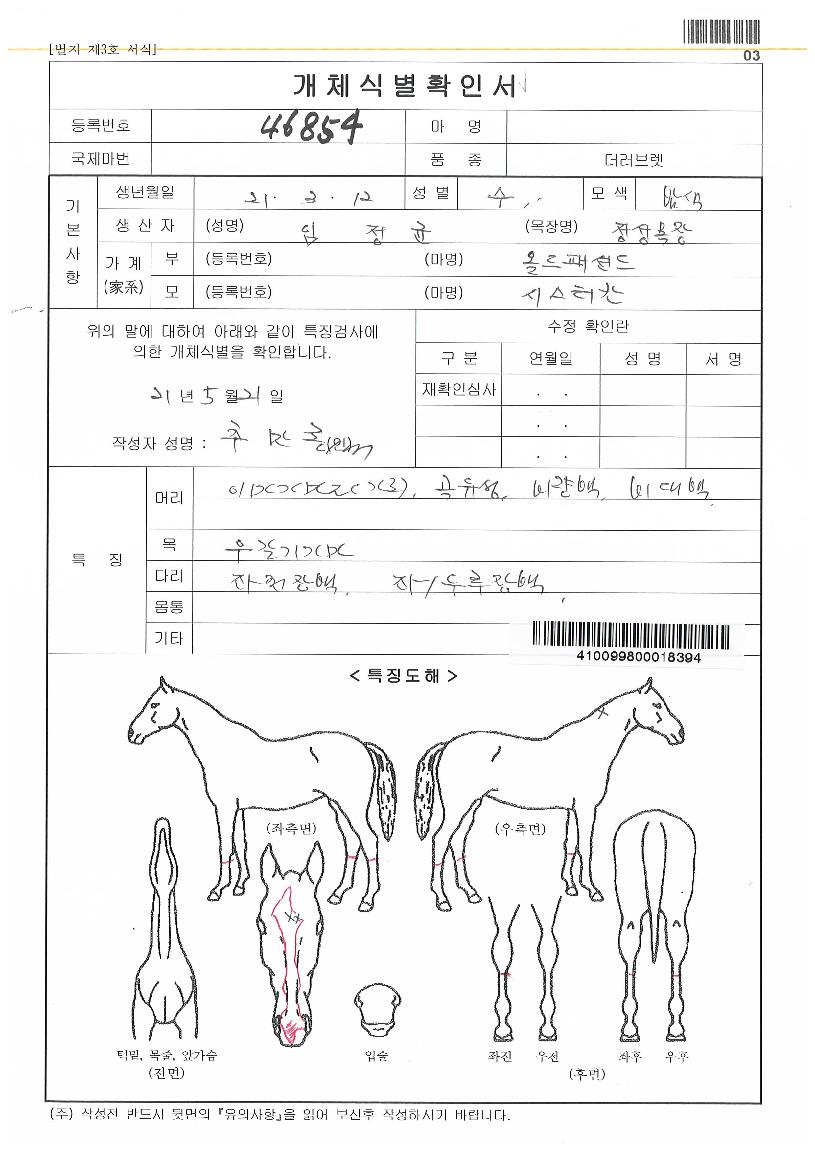 [별지 제3호 서식]
03
개체식별확인서
등록번호 46854 마 명
국제마번 품 종 더러브렛
기본사항
생년월일 21. 3. 12 성 별 수 모 색
생 산 자 (성명) 임 정 균 (목장명) 정상목장
가 계 (家系) 부 (등록번호) (마명) 올드패션드
모 (등록번호) (마명) 시스터찬
위의 말에 대하여 아래와 같이 특징검사에
의한 개체식별을 확인합니다.
21년 5월 21일
작성자 성명 :
수정 확인란
구 분 연월일 성 명 서 명
재확인심사 . .
. .
. .
특 징
머리 비량백, 비대백
목
다리
몸통
기타
410099800018394
< 특징도해 >
(좌측면) (우측면)
턱밑, 목줄, 앞가슴 입술 좌전 우전 좌후 우후
(전면) (후면)
(주) 작성전 반드시 뒷면의 『유의사항』을 읽어 보신후 작성하시기 바랍니다.